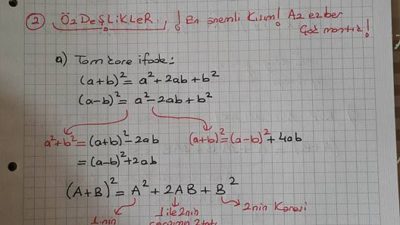 2) ÖZDEŞLİKLER ! En önemli Kısım! Az ezber
Çok mantık!
a) Tam kare ifade:
(a+b)² = a²+2ab+b²
(a-b)² = a²-2ab+b²
a²+b² = (a+b)²-2ab (a+b)²=(a-b)²+4ab
=(a-b)²+2ab
(A+B)² = A²+2AB+B²
1.nin 1 ile 2nin 2nin Karesi
çarpımın 2 katı